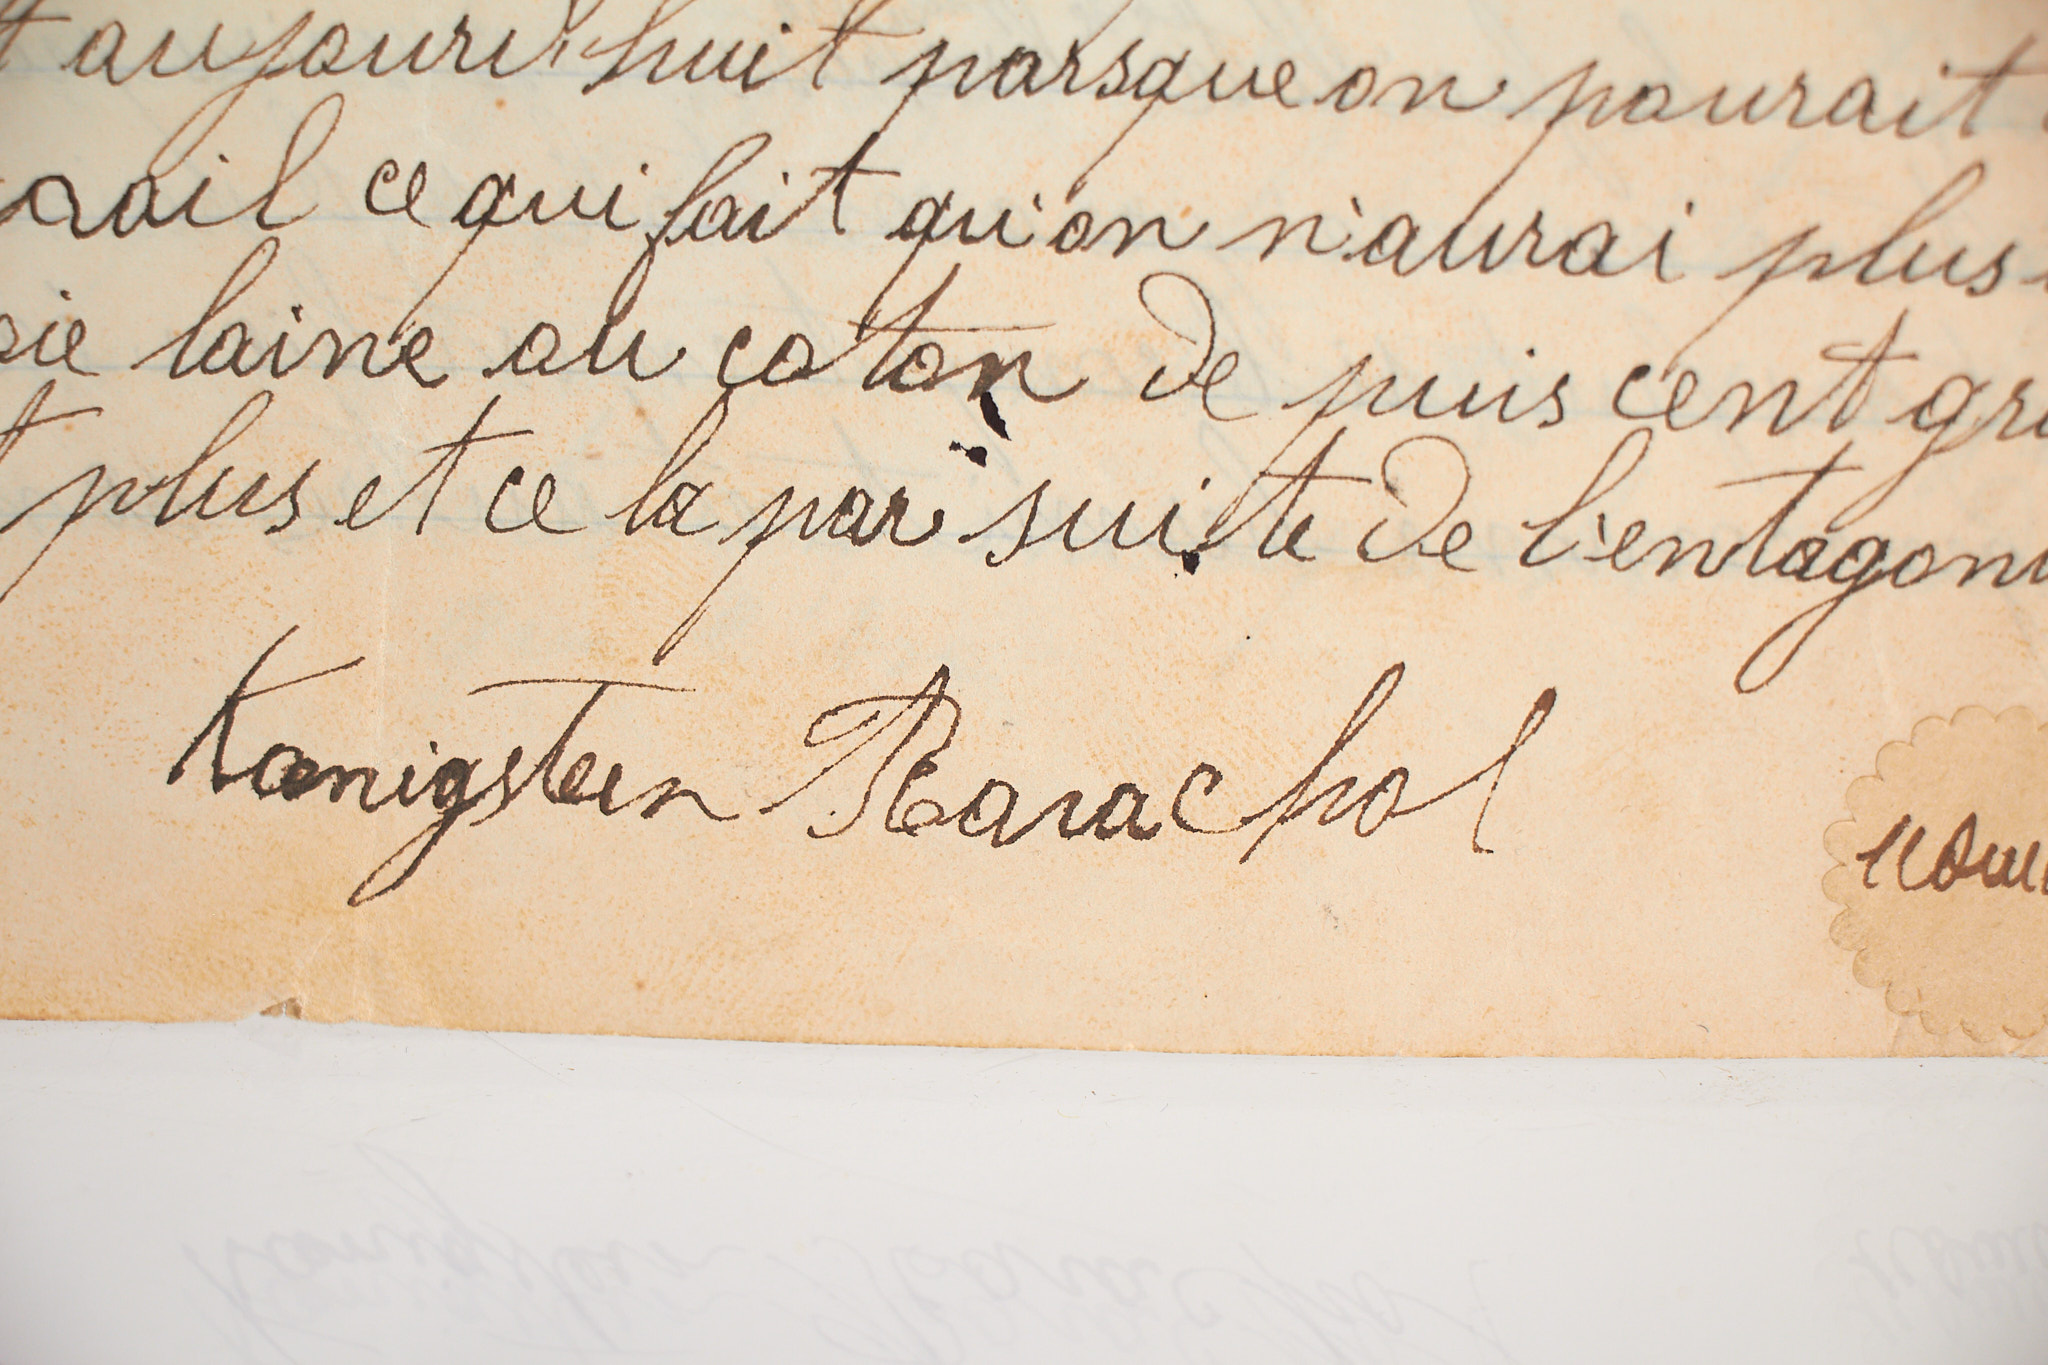 t aujourd'huit parsque on pourait
avail ce qui fait qu'on n'aurai plus
oie laine ou coton de puis cent gra
t plus et ce la par suite de l'entagoni
Kœnigstein Ravachol